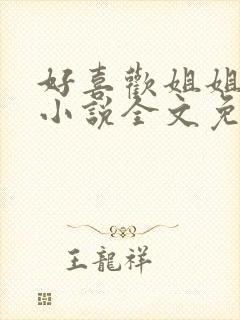 好喜歡姐姐
小說全文免
王龍祥